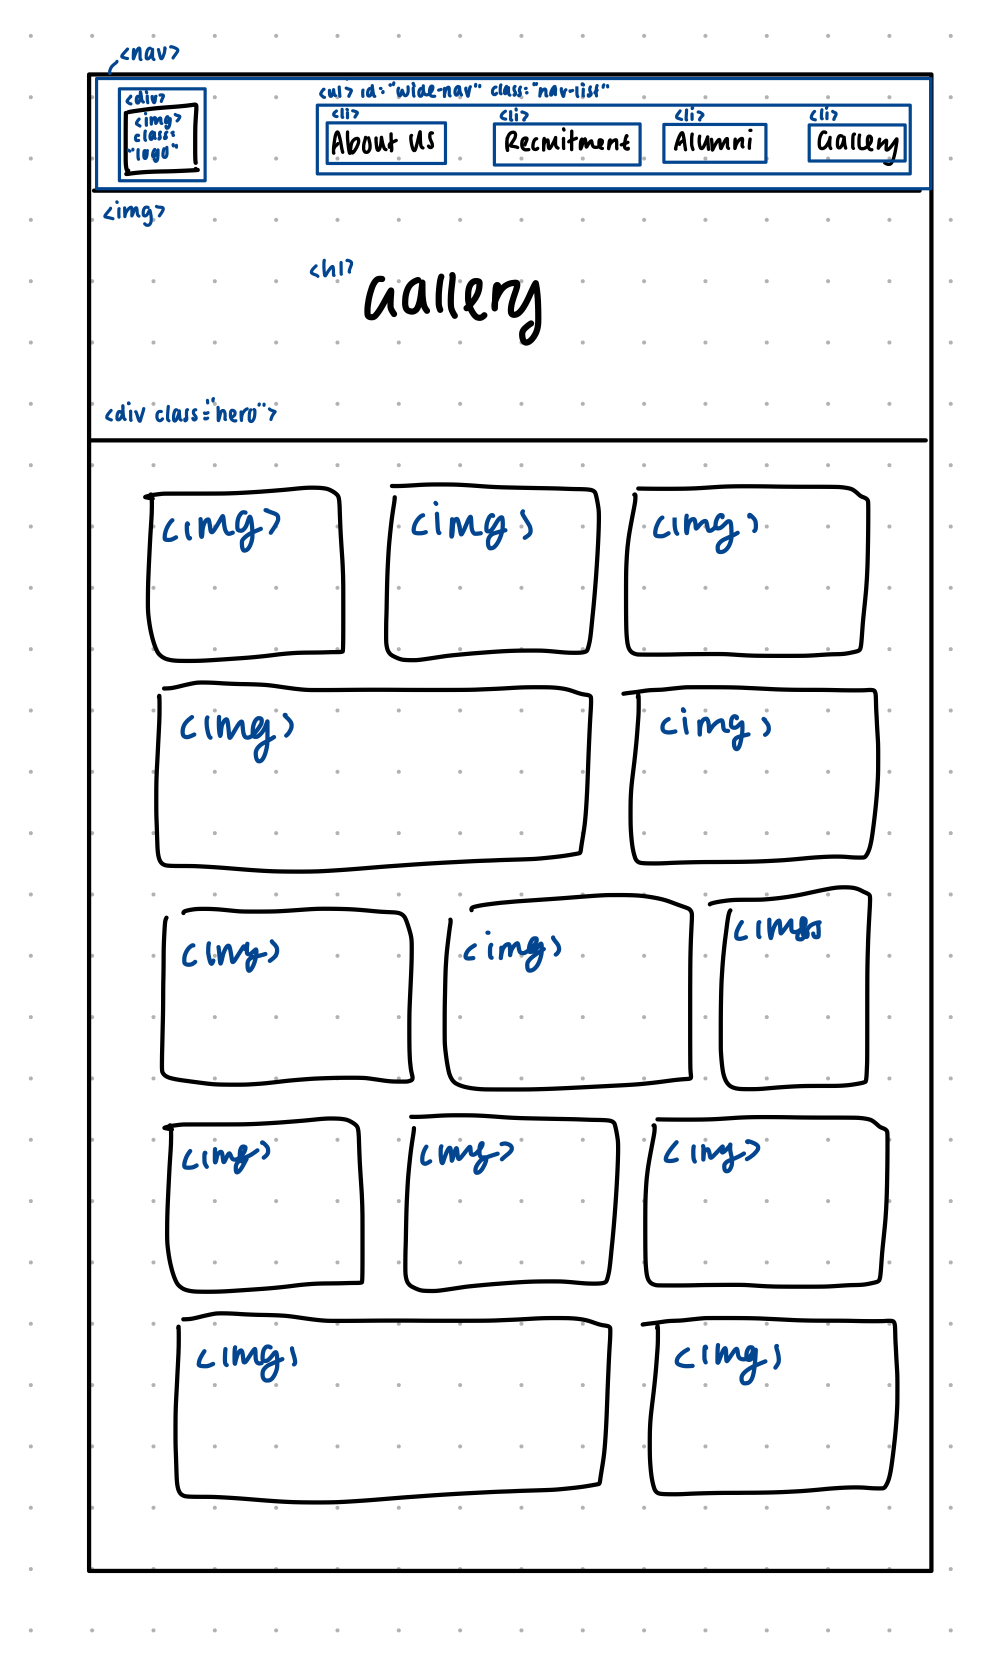 <nav>
<div>
<img>
class=
"logo"
<ul> id="wide-nav" class="nav-list"
<li> <li> <li> <li>
About Us Recruitment Alumni Gallery
<img>
<h1> Gallery
<div class="hero">
<img> <img> <img>
<img> <img>
<img> <img> <img>
<img> <img> <img>
<img> <img>